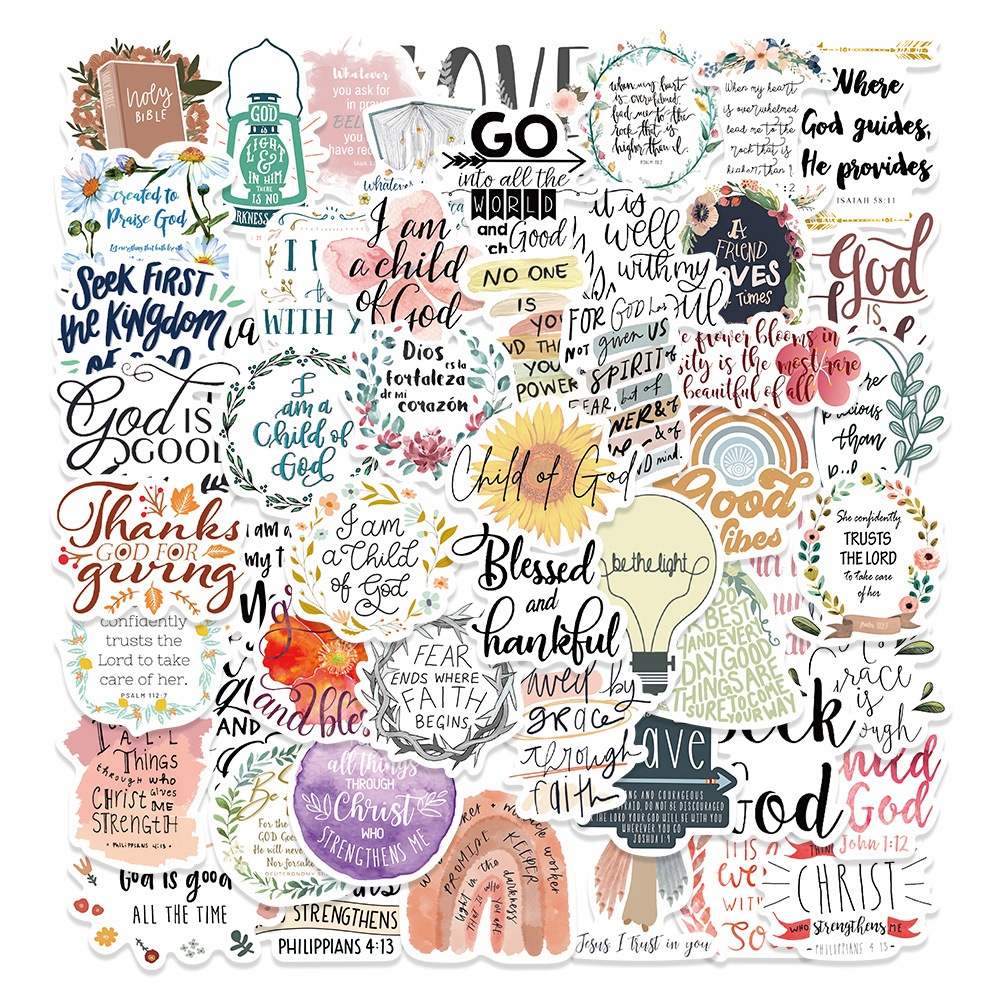 HOLY BIBLE
holy
BIBLE
GOD
is
LIGHT
&
IN HIM
THERE
IS NO
Whatever
you ask for
in
you
have
LOVE
GO
into all the
WORLD
and
Good
when my heart
is overwhelmed
lead me to the
rock that is
higher than I.
PSALM 61:2
When my heart
is overwhelmed
lead me to the
rock that is
higher than I.
Where
God guides,
He provides
ISAIAH 58:11
created to
Praise God
Let everything that hath breath
I am
a child
of God
it is
well
with my
A
FRIEND
LOVES
Times
God
IS
SEEK FIRST
the KINGDOM
OF GOD
WITH
NO ONE
IS
YOU
AND THAT
YOUR
POWER
FOR GOD has
NOT given US
SPIRIT of
FEAR, but of
POWER & of
& of
mind.
flower blooms in
is the most rare
beautiful of all
God IS
GOOD
I
am a
Child of
God
Dios es la
fortaleza
de mi
corazón
than
Child of God
Good
Vibes
Thanks
GOD FOR
giving
I am
my
I am
a Child
of God
Blessed
and
thankful
be the light
She confidently
TRUSTS
THE LORD
to take care
of her
Psalm 112:7
confidently
trusts the
Lord to take
care of her.
PSALM 112:7
AND
and
FEAR
ENDS WHERE
FAITH
BEGINS
BEST
AND EVERY
DAY GOOD
THINGS ARE
SURE TO COME
YOUR WAY
by
grace
through
faith
Grace
is
ALL
THINGS
through who
CHRIST gives
ME
STRENGTH
• PHILIPPIANS 4:13 •
Be
For the
GOD Goes
He will never
Nor forsake
DEUTERONOMY 31
all things
THROUGH
Christ
WHO
STRENGTHENS ME
AND COURAGEOUS
AFRAID, DO NOT BE DISCOURAGED
THE LORD YOUR GOD WILL BE WITH YOU
WHEREVER YOU GO
JOSHUA 1:9
God
God
John 1:12
God is good
ALL THE TIME
STRENGTHENS
PHILIPPIANS 4:13
worker
PROMISE KEEPER
light in the darkness
THAT IS WHO YOU ARE
Jesus I trust in you
IT IS
SO
CHRIST
WHO strengthens ME
- PHILIPPIANS 4:13 -